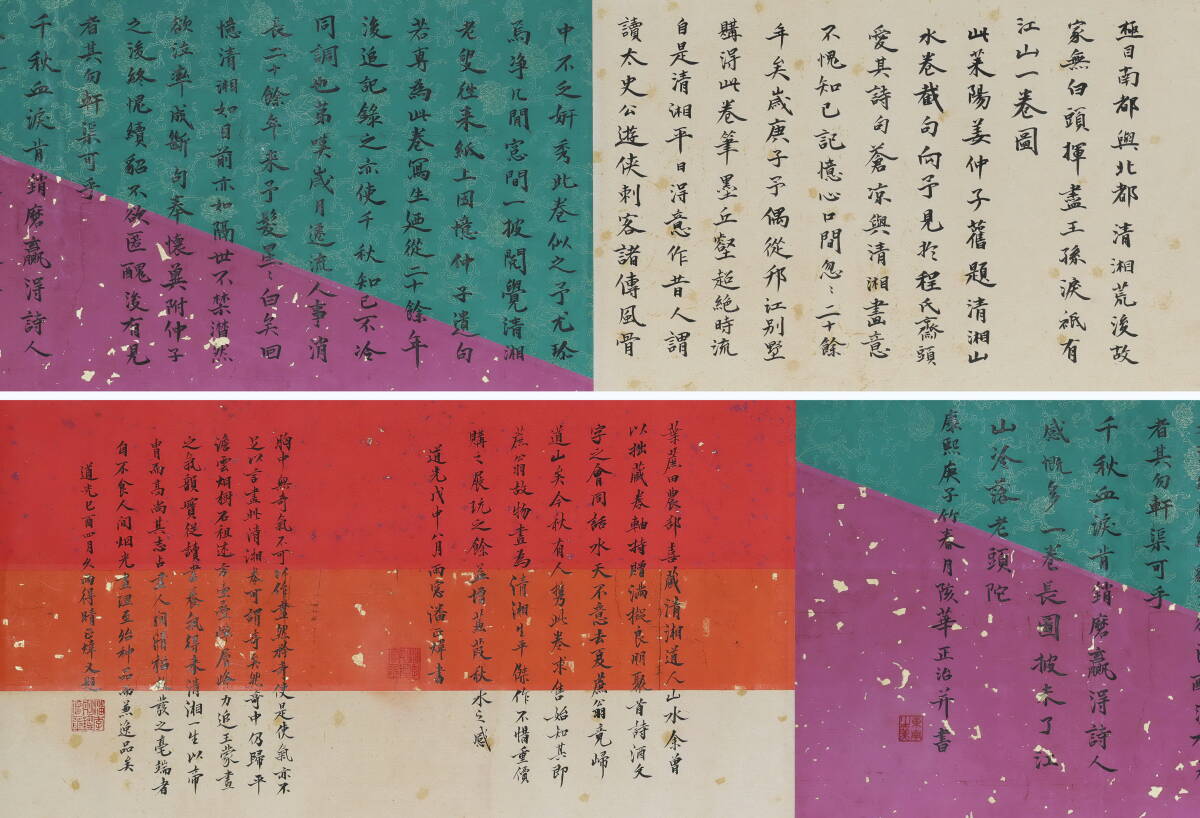 極目南都與北都清湘荒後故
家無白頭揮盡王孫淚祇有
江山一卷圖
此萊陽姜仲子舊題清湘山
水卷截句向予見於程氏齋頭
愛其詩句蒼凉與清湘畫意
不愧知己記憶心口間忽〻二十餘
年矣歲庚子予偶從邗江別墅
購得此卷筆墨丘壑超絕時流
自是清湘平日得意作昔人謂
讀太史公遊俠刺客諸傳風骨
中不乏妍秀此卷似之予尤珍
焉淨几閒窓間一披閱覺清湘
老叟徃来紙上因憶仲子遺句
若專為此卷寫生廼從二十餘年
後追記錄之亦使千秋知已不冷
同調也第嘆歲月遷流人事消
長二十餘年来予髮星〻白矣回
憶清湘如日前亦如隔世不禁潸然
欲泣率成斷句奉懷兾附仲子
之後終愧續貂不欲匿醜後有見
者其勿軒渠可乎
千秋血淚肯銷磨贏得詩人
者其勿軒渠可乎
千秋血淚肯銷磨贏得詩人
感慨多一卷長圖披未了江
山冷落老頭陀
康熙庚子竹春月陔華正治并書
葉蔗田農部喜藏清湘道人山水余曾
以拙藏卷軸持贈滿擬良朋聚首詩酒文
字之會同話水天不意去夏蔗翁竟歸
道山矣今秋有人攜此卷求售始知其即
蔗翁故物畫為清湘生平傑作不惜重價
購之展玩之餘益增蒹葭秋水之感
道光戊申八月雨窓潘正煒書
胸中無奇氣不可以作畫然矜奇使是使氣亦不
足以言畫此清湘卷可謂奇矣然奇中仍歸平
澹雲烟樹石祖述方壺峯巒層峰力追王蒙畫
之氣韻實從讀書養氣得来清湘一生以帝
胄而高尚其志古畫人間情格發之毫端者
自不食人间烟光墨溫並臻神品而兼逸品矣
道光己酉四月久雨得晴正煒又題